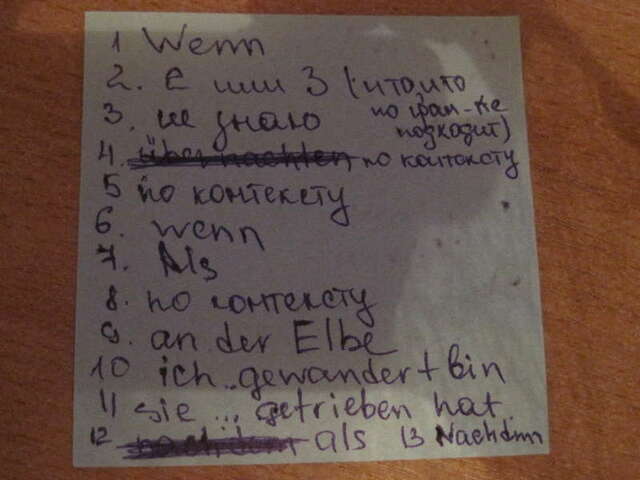 1 Wenn
2. Е или 3 (и то, и то
по грам-ке
3. не знаю
подходит)
4. übernachten по контексту
5 по контексту
6. wenn
7. Als
8. по контексту
9. an der Elbe
10 ich..gewandert bin
11 sie ... getrieben hat.
12 nachdem als 13 Nachdem